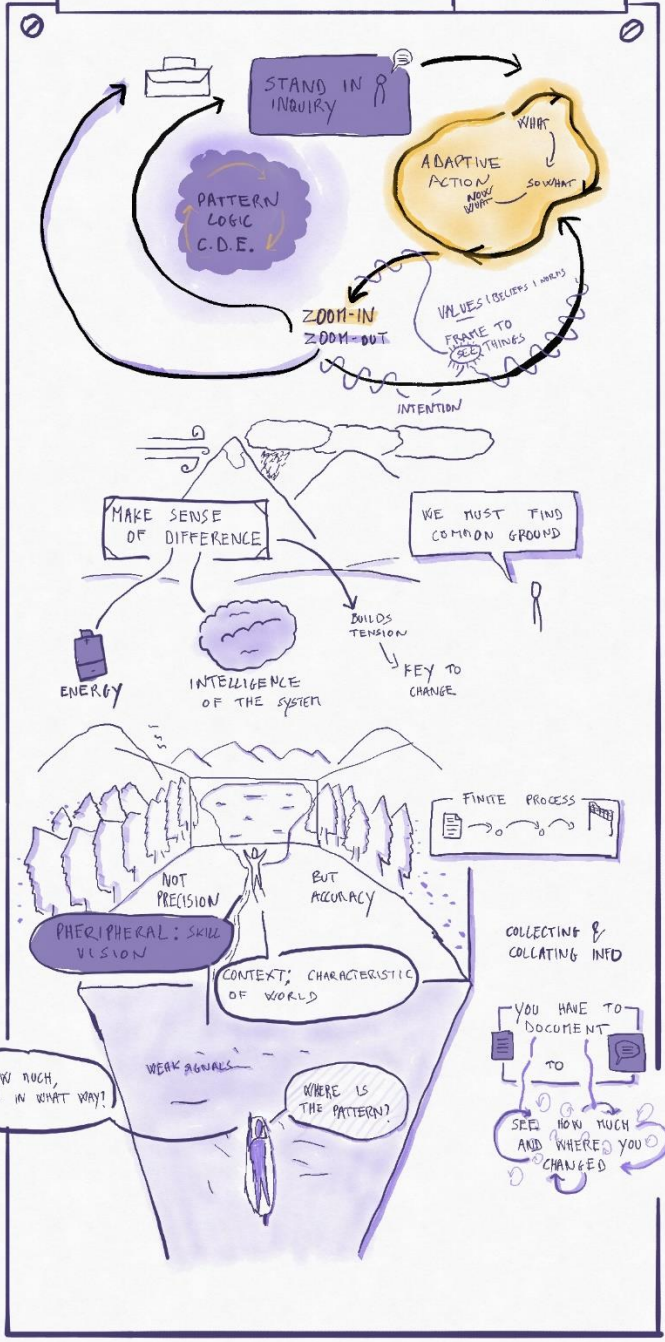 STAND IN
INQUIRY
PATTERN
LOGIC
C.D.E.
ADAPTIVE
ACTION
WHAT
SO WHAT
NOW
WHAT
ZOOM-IN
ZOOM-OUT
VALUES | BELIEFS | WORDS
FRAME TO
SEE THINGS
INTENTION
MAKE SENSE
OF DIFFERENCE
WE MUST FIND
COMMON GROUND
ENERGY
INTELLIGENCE
OF THE SYSTEM
BUILDS
TENSION
KEY TO
CHANGE
FINITE PROCESS
NOT
PRECISION
BUT
ACCURACY
PHERIPHERAL: SKILL
VISION
CONTEXT: CHARACTERISTIC
OF WORLD
COLLECTING &
COLLATING INFO
YOU HAVE TO
DOCUMENT
TO
SEE HOW MUCH
AND WHERE YOU
CHANGED
WEAK SIGNALS
W MUCH,
IN WHAT WAY?
WHERE IS
THE PATTERN?